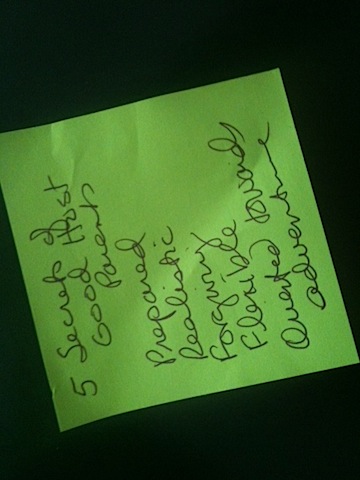 5 Secrets of
Good Host
Parents
Prepared
Realistic
Forgiving
Flexible
Oriented towards
adventure